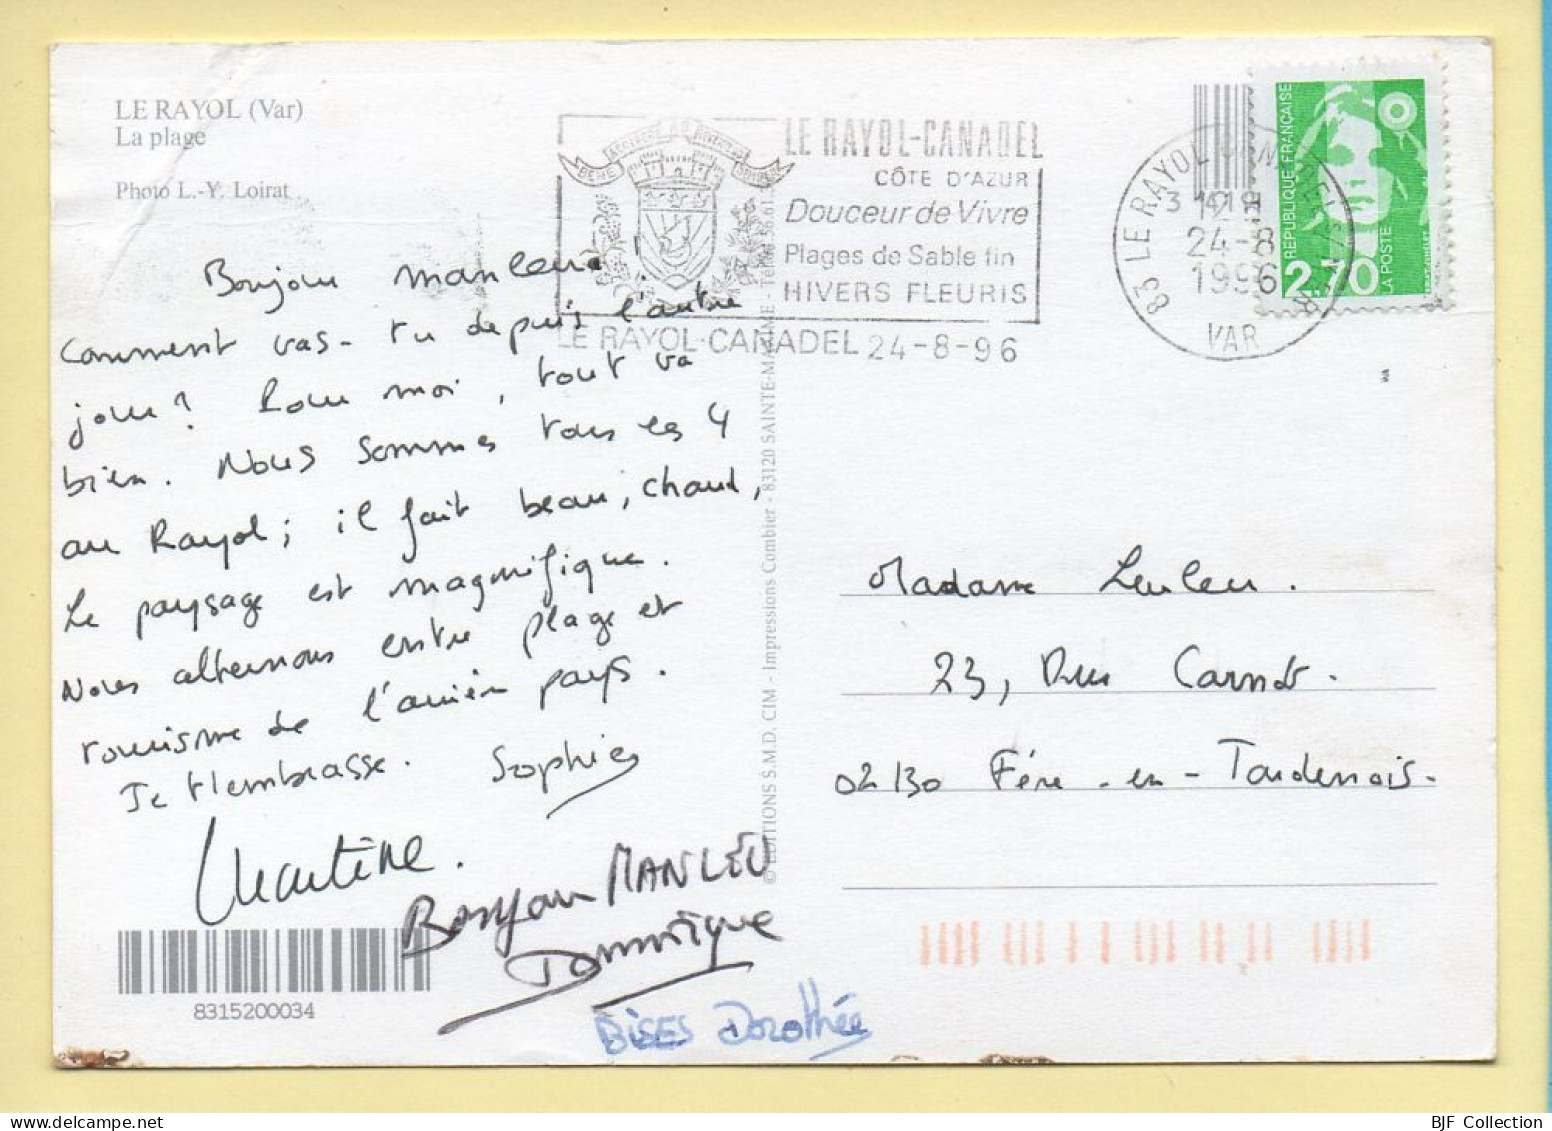 LE RAYOL (Var)
La plage
Photo L.-Y. Loirat
LE RAYOL-CANADEL
CÔTE D'AZUR
Douceur de Vivre
Plages de Sable fin
HIVERS FLEURIS
LE RAYOL-CANADEL 24-8-96
83 LE RAYOL CANADEL
12H
24-8
1996
VAR
RÉPUBLIQUE FRANÇAISE
2,70
LA POSTE
Bonjour manleu
Comment vas-tu depuis l'autre
jour? Pour moi, tout va
bien. Nous sommes tous les 4
au Rayol; il fait beau, chaud,
Le paysage est magnifique.
Nous alternons entre plage et
tourisme de l'arrière pays.
Je t'embrasse. Sophie
Martine.
Bonjour MANLEU
Dominique
BISES Dorothée
8315200034
© EDITIONS S.M.D. CIM - Impressions Combier - 83120 SAINTE-MAXIME -
Madame Leuleu.
23, Rue Carnot.
02130 Fére-en-Tardenois-
BJF Collection